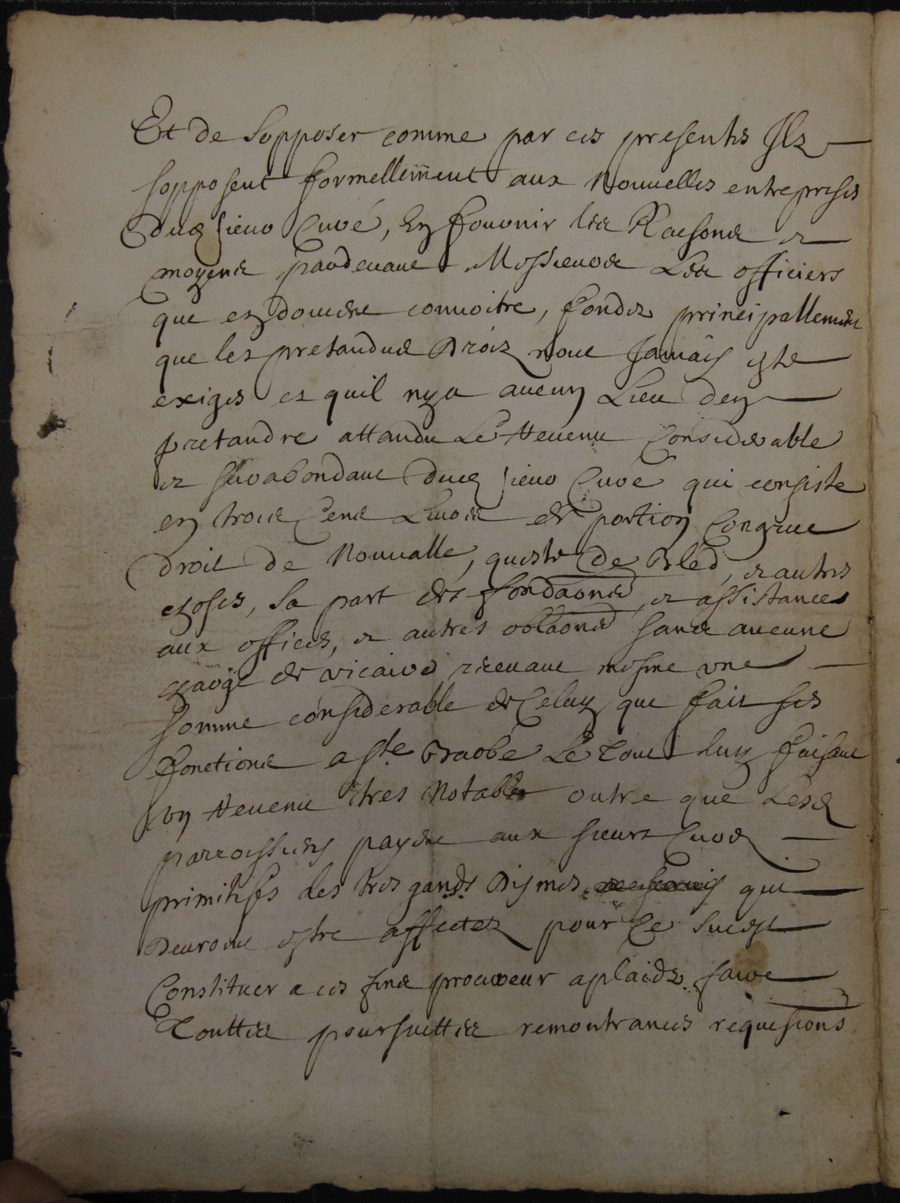 Et de Sopposer comme par ces presentes Ilz
sopposent formellement aux Nouuelles entreprises
dud sieur Curé, En fournir les Raisons et
moyens pardeuant Messieurs Les officiers
que en doiuent connoitre, fondez principallement
que les pretandus Droiz nont Jamais este
exiges et quil nya aucun Lieu den
pretandre attandu Le Reuenu Considerable
et surabondant dud sieur Curé qui consiste
en trois Cens Liures de portion Congrue
droit de Nouualle, queste de Bled, et autres
choses, Sa part des fondaons, et assistances
aux offices, et autres oblaons sans aucune
charge de vicaire receuant mesme une
somme considerable de Celuy que fait ses
fonctions a ste Barbe Le tout luy faisant
un Reuenu tres Notable outre que Lesd
parroissiens payent aux sieurs Cures
primitifs des tres gands Dismes qui
Deuront estre affectez pour Ce Suiet
Constituer a ces fins procureur aplaids faire
Touttes poursuittes remontrances requisions